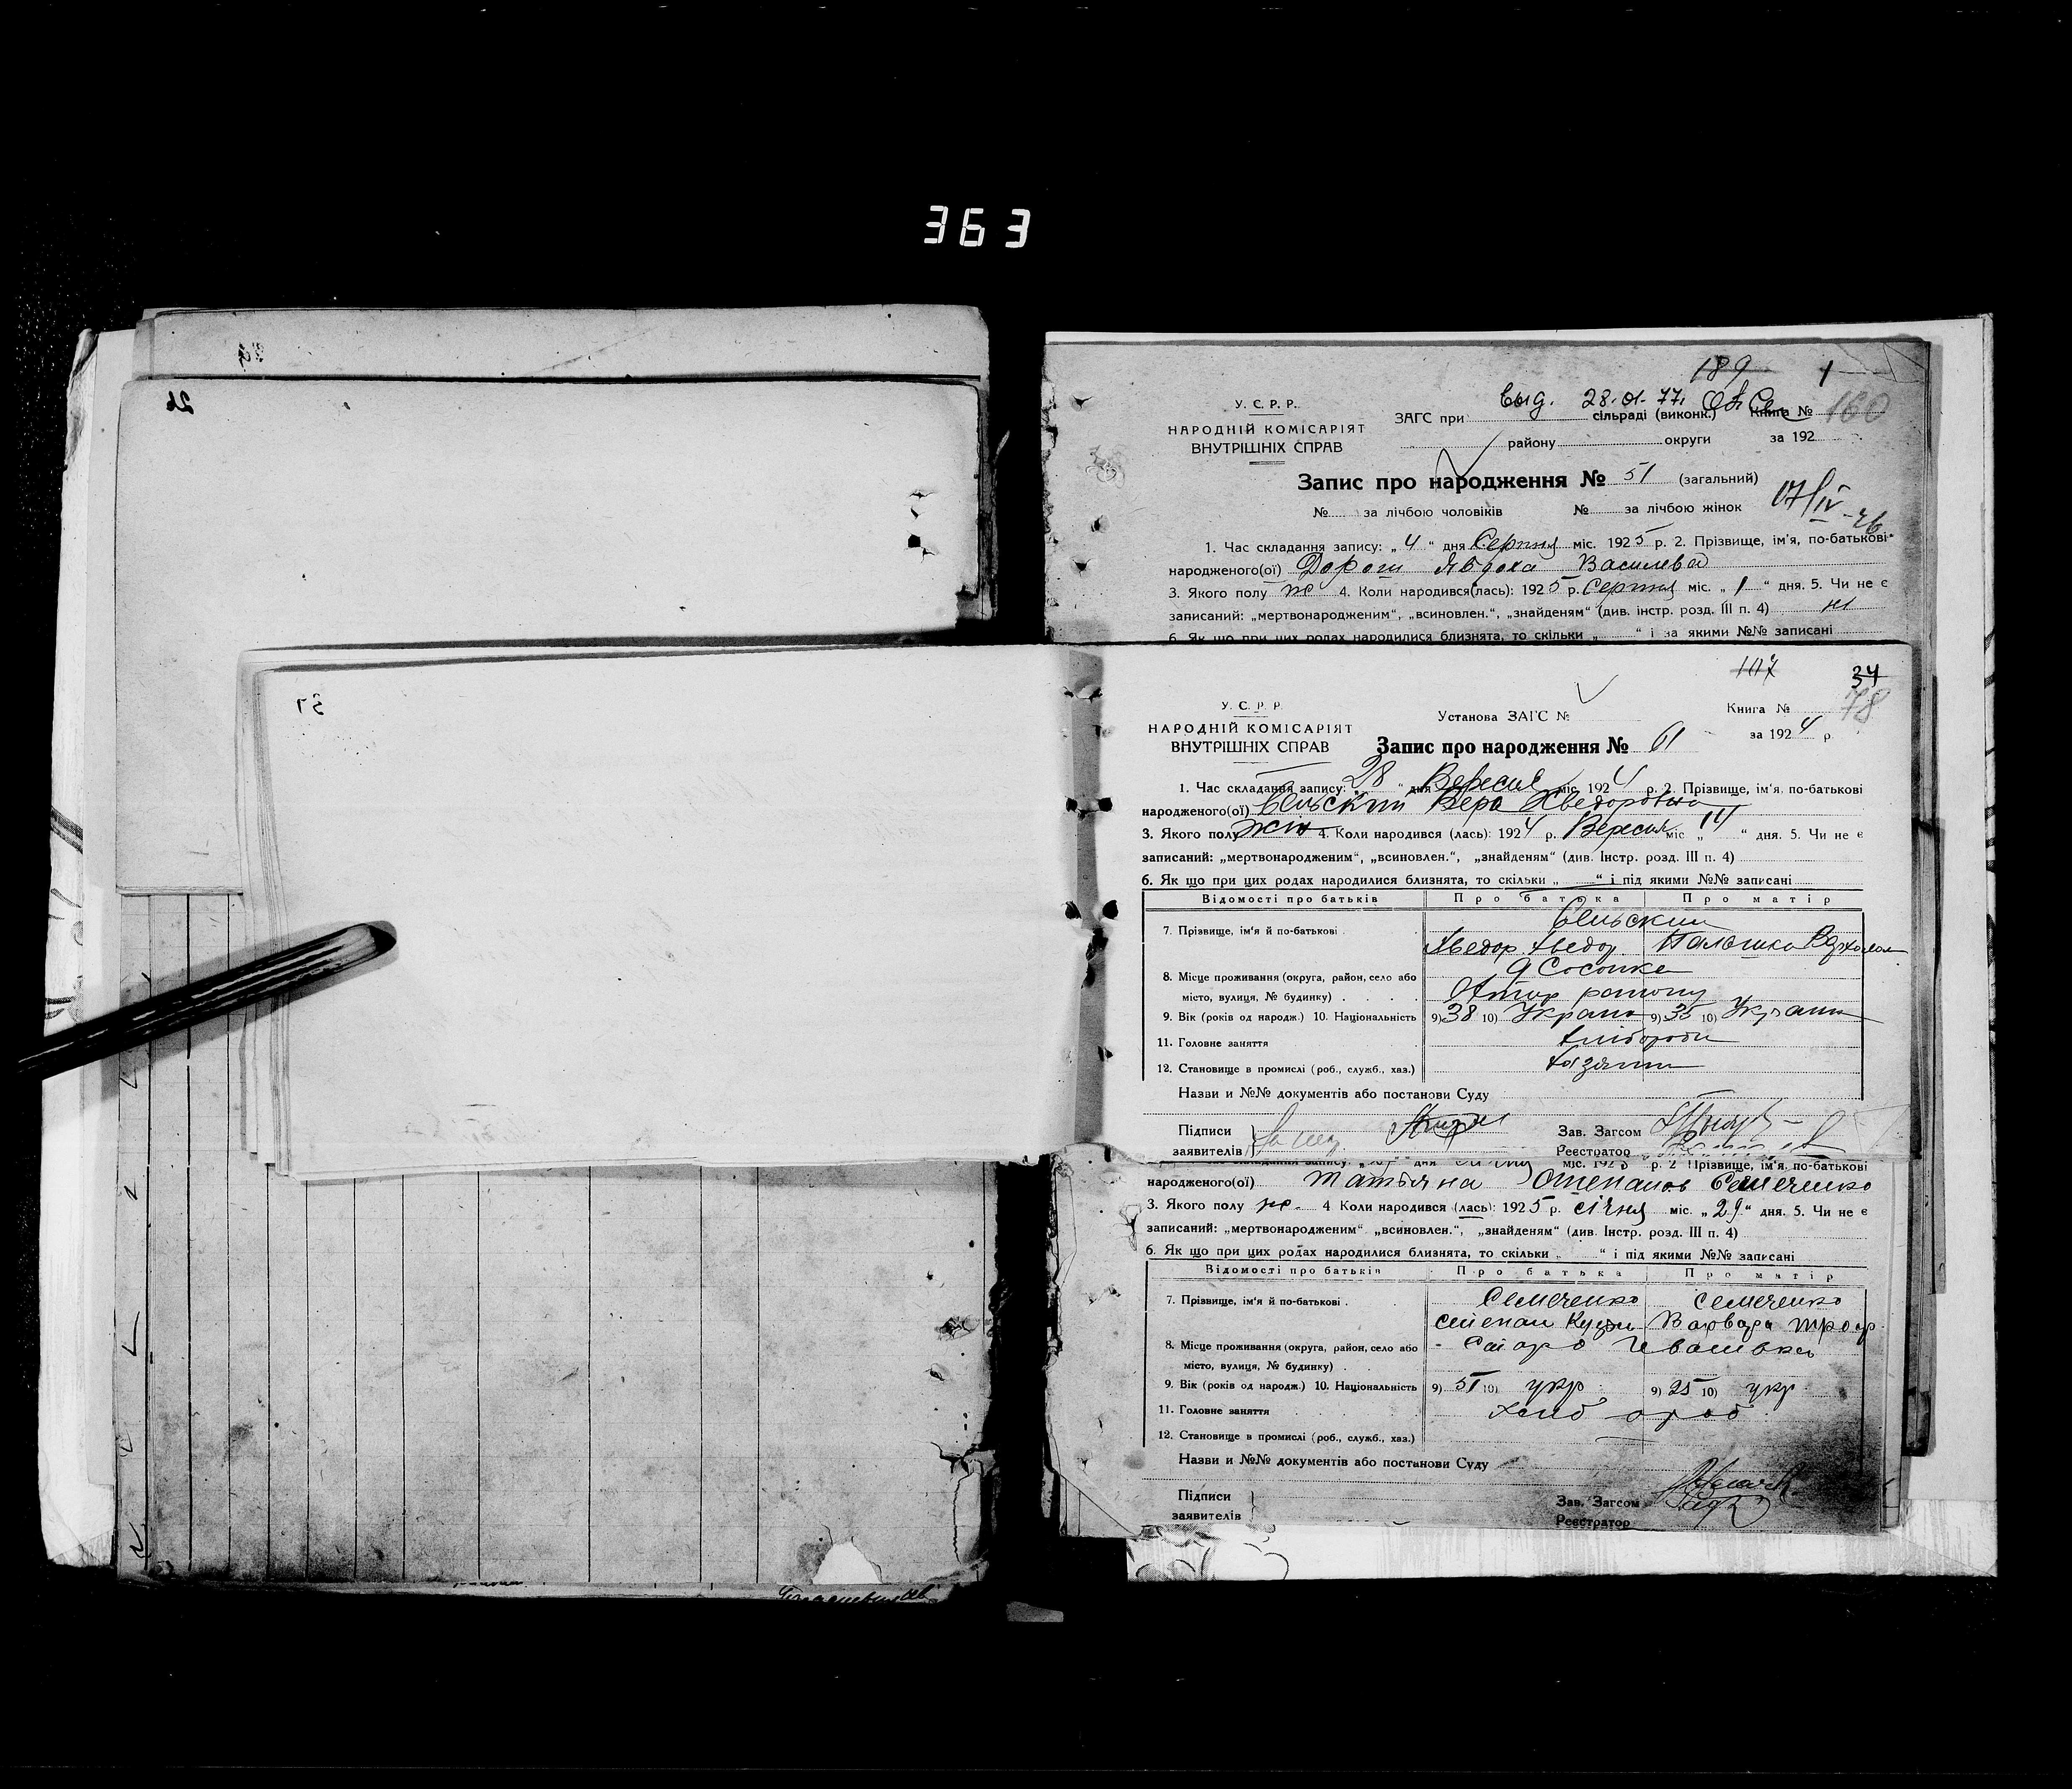 363
26
37
189 1
выд. 28.01.77.
У. С. Р. Р.
НАРОДНІЙ КОМІСАРІЯТ
ВНУТРІШНІХ СПРАВ
ЗАГС при сільраді (виконк.) Книга № 180
району округи за 192
Запис про народження № 51 (загальний)
№ за лічбою чоловіків № за лічбою жінок
17/IV-26
1. Час складання запису: „ 4 “ дня Серпня міс. 1925 р. 2. Прізвище, ім'я, по-батькові
народженого(ої) Дорош Явдоха Василева
3. Якого полу ж 4. Коли народився(лась): 1925 р. Серпня міс. „ 1 “ дня. 5. Чи не є
записаний: „мертвонародженим“, „всиновлен.“, „знайденям“ (див. інстр. розд. III п. 4) ні
6. Як що при цих родах народилися близнята, то скільки „ “ і за якими №№ записані
107 37
78
У. С. Р. Р.
НАРОДНІЙ КОМІСАРІЯТ
ВНУТРІШНІХ СПРАВ
Установа ЗАГС № Книга №
за 1924 р.
Запис про народження № 61
1. Час складання запису: „ 28 “ дня Вересня міс. 1924 р. 2. Прізвище, ім'я, по-батькові
народженого(ої) Вера Хведоровна
3. Якого полу жін 4. Коли народився (лась): 1924 р. Вересня міс „ 14 “ дня. 5. Чи не є
записаний: „мертвонародженим“, „всиновлен.“, „знайденям“ (див. Інстр. розд. III п. 4)
6. Як що при цих родах народилися близнята, то скільки „ “ і під якими №№ записані
Відомості про батьків Про батька Про матір
7. Прізвище, ім'я й по-батькові
Хведор Хведор
8. Місце проживання (округа, район, село або Сосонка
місто, вулиця, № будинку)
9. Вік (років од народж.) 10. Національність 9) 38 10) Украин 9) 35 10) Украин
11. Головне заняття
12. Становище в промислі (роб., служб., хаз.) Хазяин
Назви и №№ документів або постанови Суду
Підписи
заявителів
Зав. Загсом
Реєстратор
міс. 1925 р. 2 Прізвище, ім'я, по-батькові
народженого(ої) Татьяна Степанов Семеченко
3. Якого полу ж. 4 Коли народився (лась): 1925 р. січня міс. „ 29 “ дня. 5. Чи не є
записаний: „мертвонародженим“ „всиновлен.“, „знайденям“ (див. Інстр. розд. III п. 4)
6. Як що при цих родах народилися близнята, то скільки „ “ і під якими №№ записані
Відомості про батьків Про батька Про матір
7. Прізвище, ім'я й по-батькові Семеченко Семеченко
Степан Варвара
8. Місце проживання (округа, район, село або
місто, вулиця, № будинку)
9. Вік (років од народж.) 10. Національність 9) 51 10) укр 9) 25 10) укр
11. Головне заняття хліб ороб
12. Становище в промислі (роб., служб., хаз.)
Назви и №№ документів або постанови Суду
Підписи
заявителів
Зав. Загсом
Реєстратор